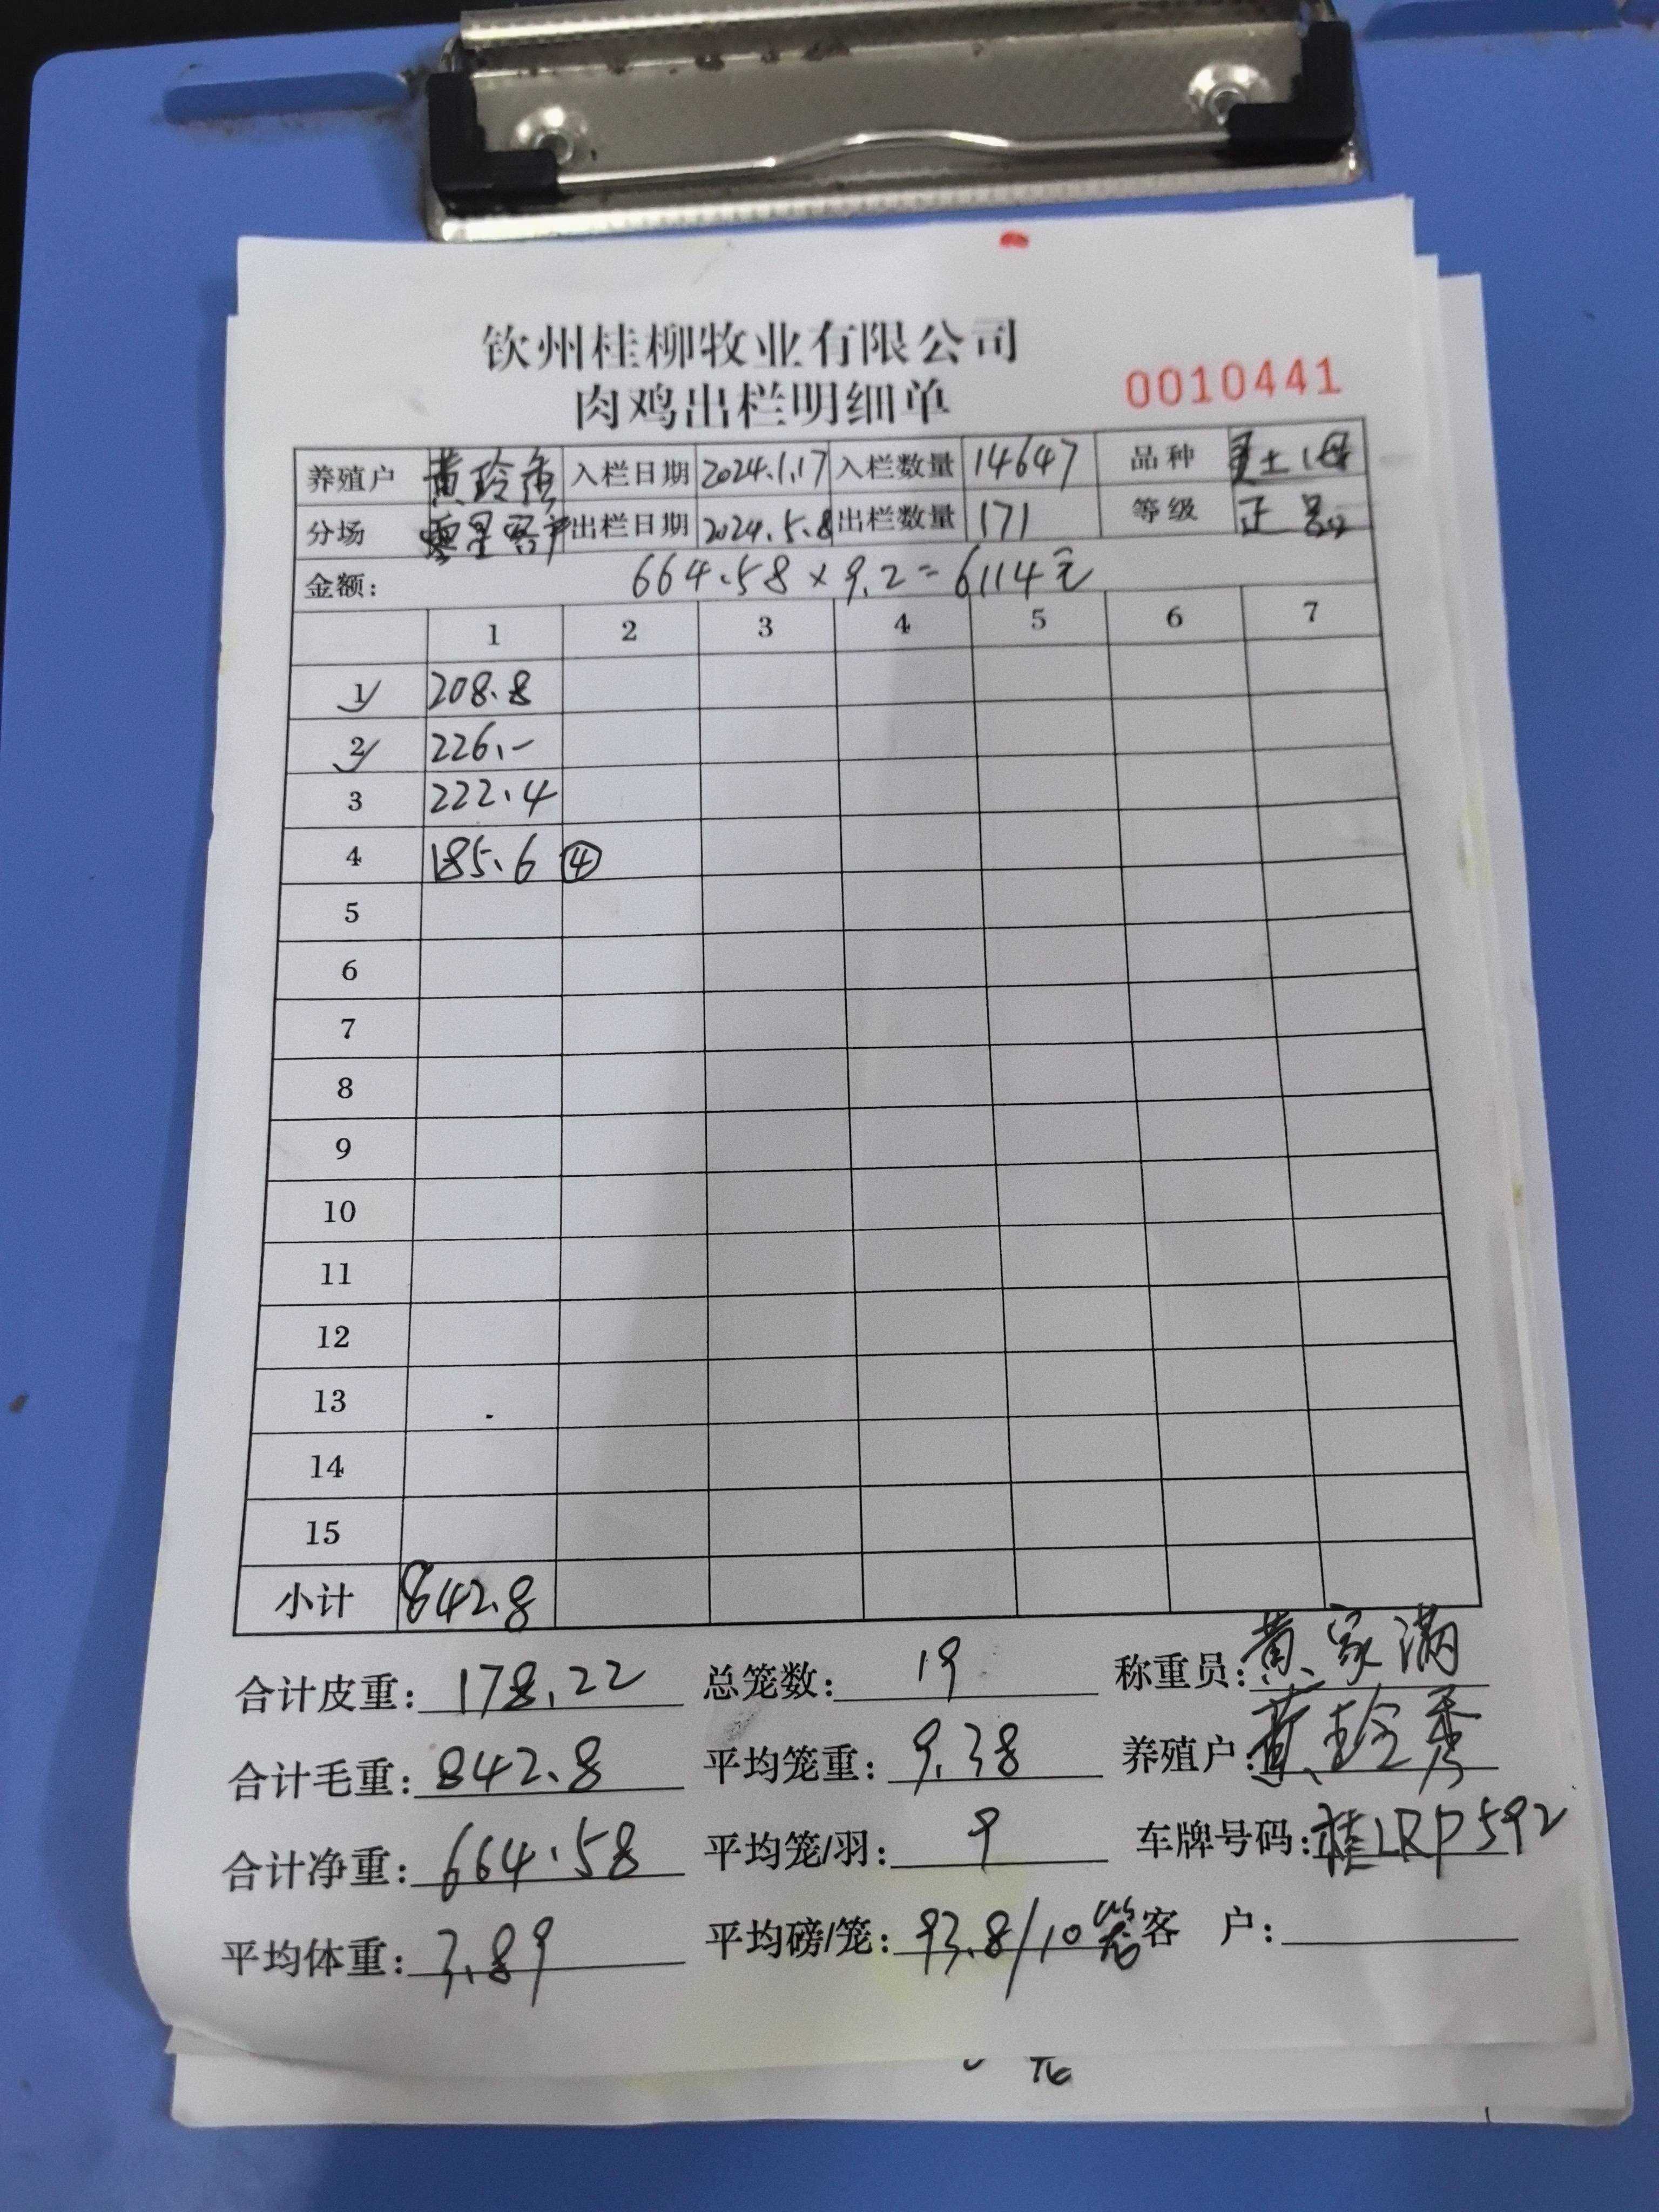 钦州桂柳牧业有限公司
肉鸡出栏明细单
0010441
养殖户 黄玲秀 入栏日期 2024.1.17 入栏数量 14647 品种 土1母
分场 零星客户 出栏日期 2024.5.8 出栏数量 171 等级 正品
金额: 664.58×9.2=6114元
1 2 3 4 5 6 7
1 208.8
2 226.-
3 222.4
4 185.6 ④
5
6
7
8
9
10
11
12
13
14
15
小计 842.8
合计皮重: 178.22 总笼数: 19 称重员: 黄家满
合计毛重: 842.8 平均笼重: 9.38 养殖户: 黄玲秀
合计净重: 664.58 平均笼/羽: 9 车牌号码: 桂LRP592
平均体重: 3.89 平均磅/笼: 93.8/10 客 户: